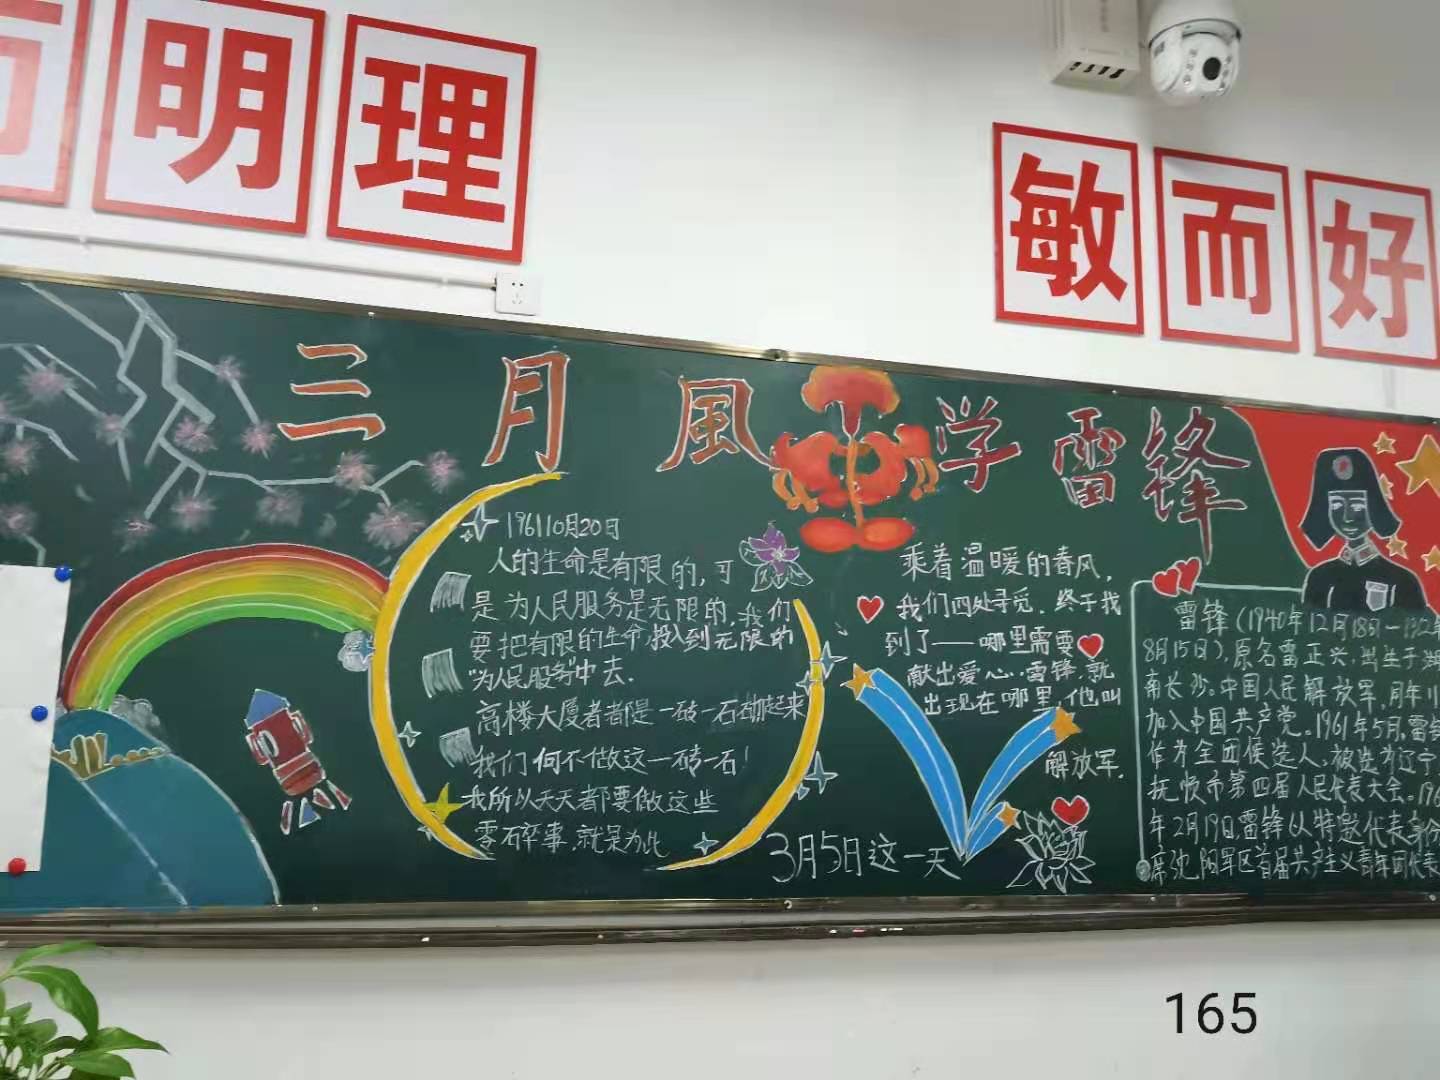 明理
敏而好
三月風 学雷锋
196110月20日
人的生命是有限的,可
是为人民服务是无限的,我们
要把有限的生命,投入到无限的
“为人民服务”中去.
高楼大厦者都是一砖一石砌起来
我们何不做这一砖一石!
我所以天天都要做这些
零碎事,就是为此
乘着温暖的春风,
我们四处寻觅.终于找
到了——哪里需要
献出爱心.雷锋,就
出现在哪里,他叫
解放军.
3月5日这一天
雷锋(1940年12月18日-1962年
8月15日),原名雷正兴,出生于湖
南长沙。中国人民解放军,同年11
加入中国共产党。1961年5月,雷锋
作为全团候选人,被选为辽宁
抚顺市第四届人民代表大会。196
年2月19日雷锋以特邀代表身份
席沈阳军区首届共产主义青年团代表
165